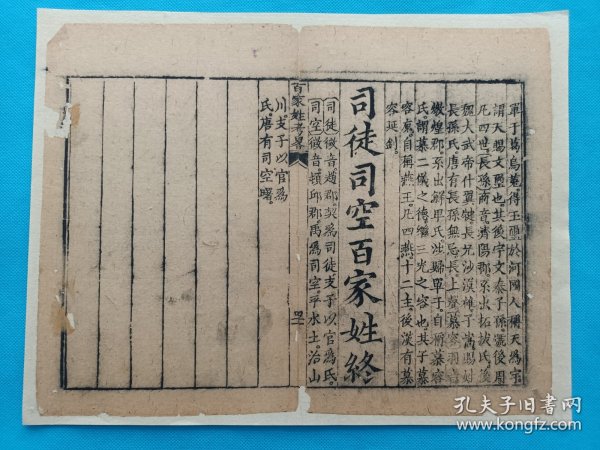 單于葛烏菟得玉璽於河國人稱天爲宇
謂天賜文璽也其後宇文泰子孫號後周
凡四世。長孫商音濟陽郡系出拓拔氏後
魏大武帝什翼犍長兄沙漠雄子嵩賜姓
長孫氏唐有長孫無忌長上聲慕容羽音
燉煌郡系出鮮卑氏涉歸單于。自稱慕容
氏。謂慕二儀之德繼三光之容也其子慕
容廆自稱燕王。凡四燕十二主。後漢有慕
容延釗。
司徒司空百家姓終
司徒徵音趙郡。契爲司徒支子以官爲氏。
司空徵音頓邱郡。禹爲司空。平水土。治山
百家姓考畧
川支子以官爲
氏唐有司空曙。
孔夫子旧书网
www.kongfz.com